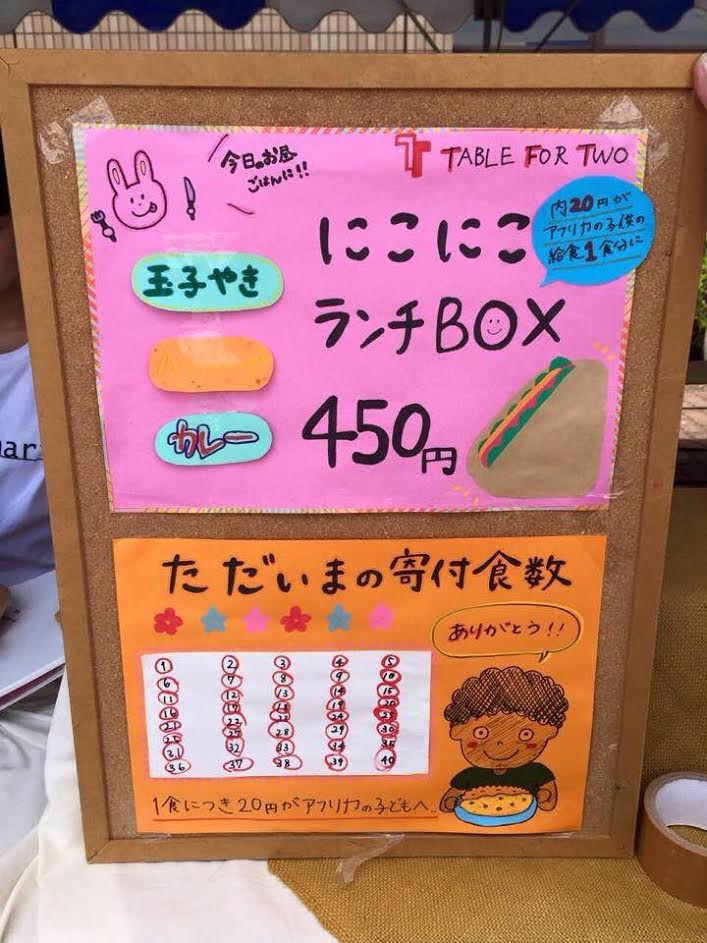 今日のお昼
ごはんに!!
TABLE FOR TWO
にこにこ
ランチBOX
内20円が
アフリカの子供の
給食1食分に
玉子やき
カレー
450円
ただいまの寄付食数
ありがとう!!
1 2 3 4 5
6 7 8 9 10
11 12 13 14 15
16 17 18 19 20
21 22 23 24 25
28 29 30
31 32 33 34 35
36 37 38 39 40
1食につき20円がアフリカの子どもへ..